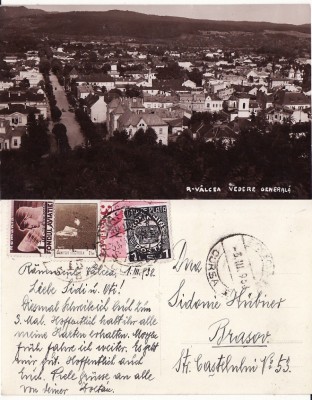 R-VÂLCEA VEDERE GENERALĂ
FONDUL AVIAŢIEI
Râmnicul Vâlcea, 1.III.932
Liebe Sidi u. Oti!
Diesmal schreibe ich Euch zum
3. Mal. Hoffentlich habt ihr alle
meine Karten erhalten. Morgen
früh fahre ich weiter. Es geht
mir gut. Hoffentlich auch
Euch. Viele Grüsse an alle
von deiner
Dna
Sidonie Hübner
Brasov
Str. Castelului No 53.